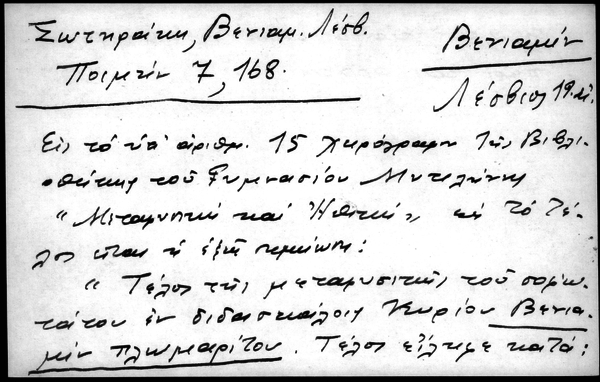 Σωτηράκη, Βενιαμ. Λέσβ.
Ποιμήν 7, 168.
Βενιαμίν
Λέσβιος 19
Εἰς τό ὑπ' ἀριθμ. 15 χειρόγραφον τῆς Βιβλι-
οθήκης τοῦ Γυμνασίου Μυτιλήνης
"Μεταφυσική καί Ἠθική" εἰς τό τέ-
λος εἶναι ἡ ἑξῆς σημείωσις:
"Τέλος τῆς μεταφυσικῆς τοῦ σοφω-
τάτου ἐν διδασκάλοις Κυρίου Βενια-
μίν πλωμαρίτου. Τέλος εἴληφε κατά: